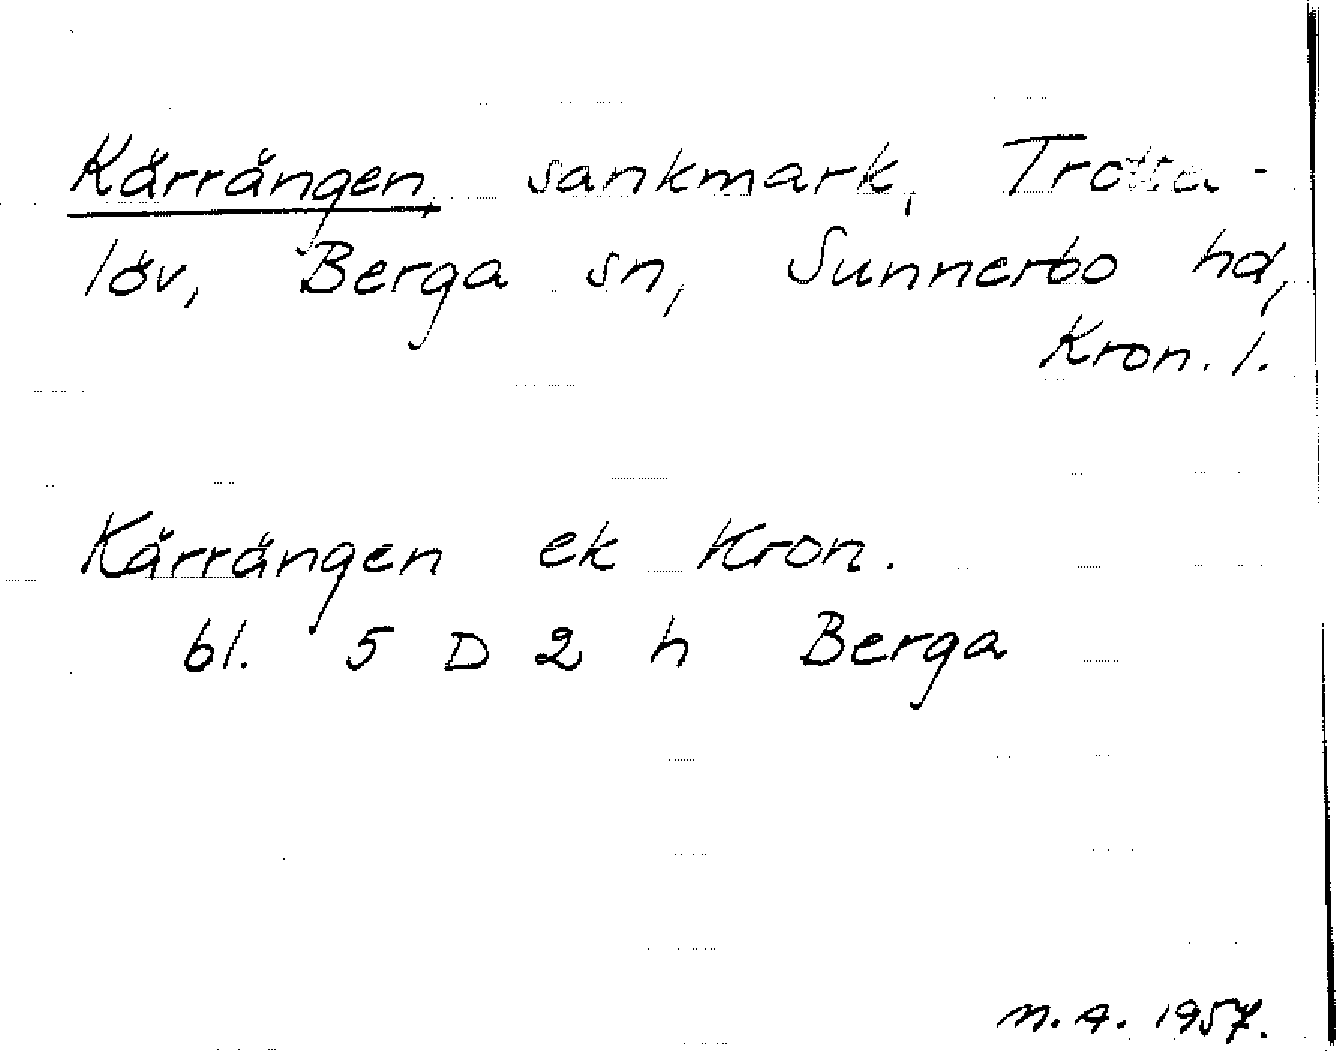 Kärrängen, sankmark, Trotta-
löv, Berga sn, Sunnerbo hd,
Kron. l.
Kärrängen ek Kron.
bl. 5 D 2 h Berga
M. A. 1957.